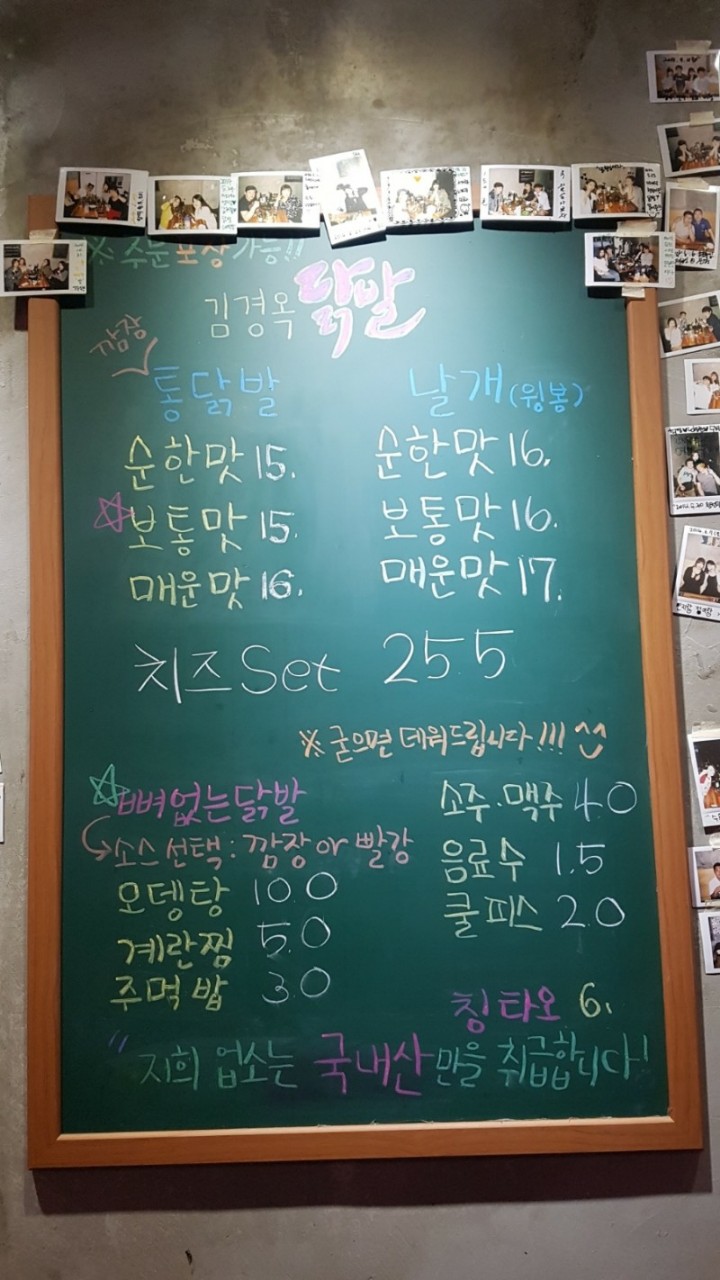 ※ 주문 포장 가능!!
김경옥 닭발
깜장
통닭발
순한맛 15.
☆보통맛 15.
매운맛 16.
날개(윙봉)
순한맛 16.
보통맛 16.
매운맛 17.
치즈 Set 25.5
※ 굳으면 데워드립니다!!! ^^
☆뼈없는닭발
소스 선택 : 깜장 or 빨강
오뎅탕 10.0
계란찜 5.0
주먹밥 3.0
소주·맥주 4.0
음료수 1.5
쿨피스 2.0
칭타오 6.
"저희 업소는 국내산만을 취급합니다!